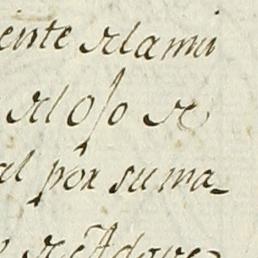 ente dela mi
del oso de
al por su ma-
de Adove